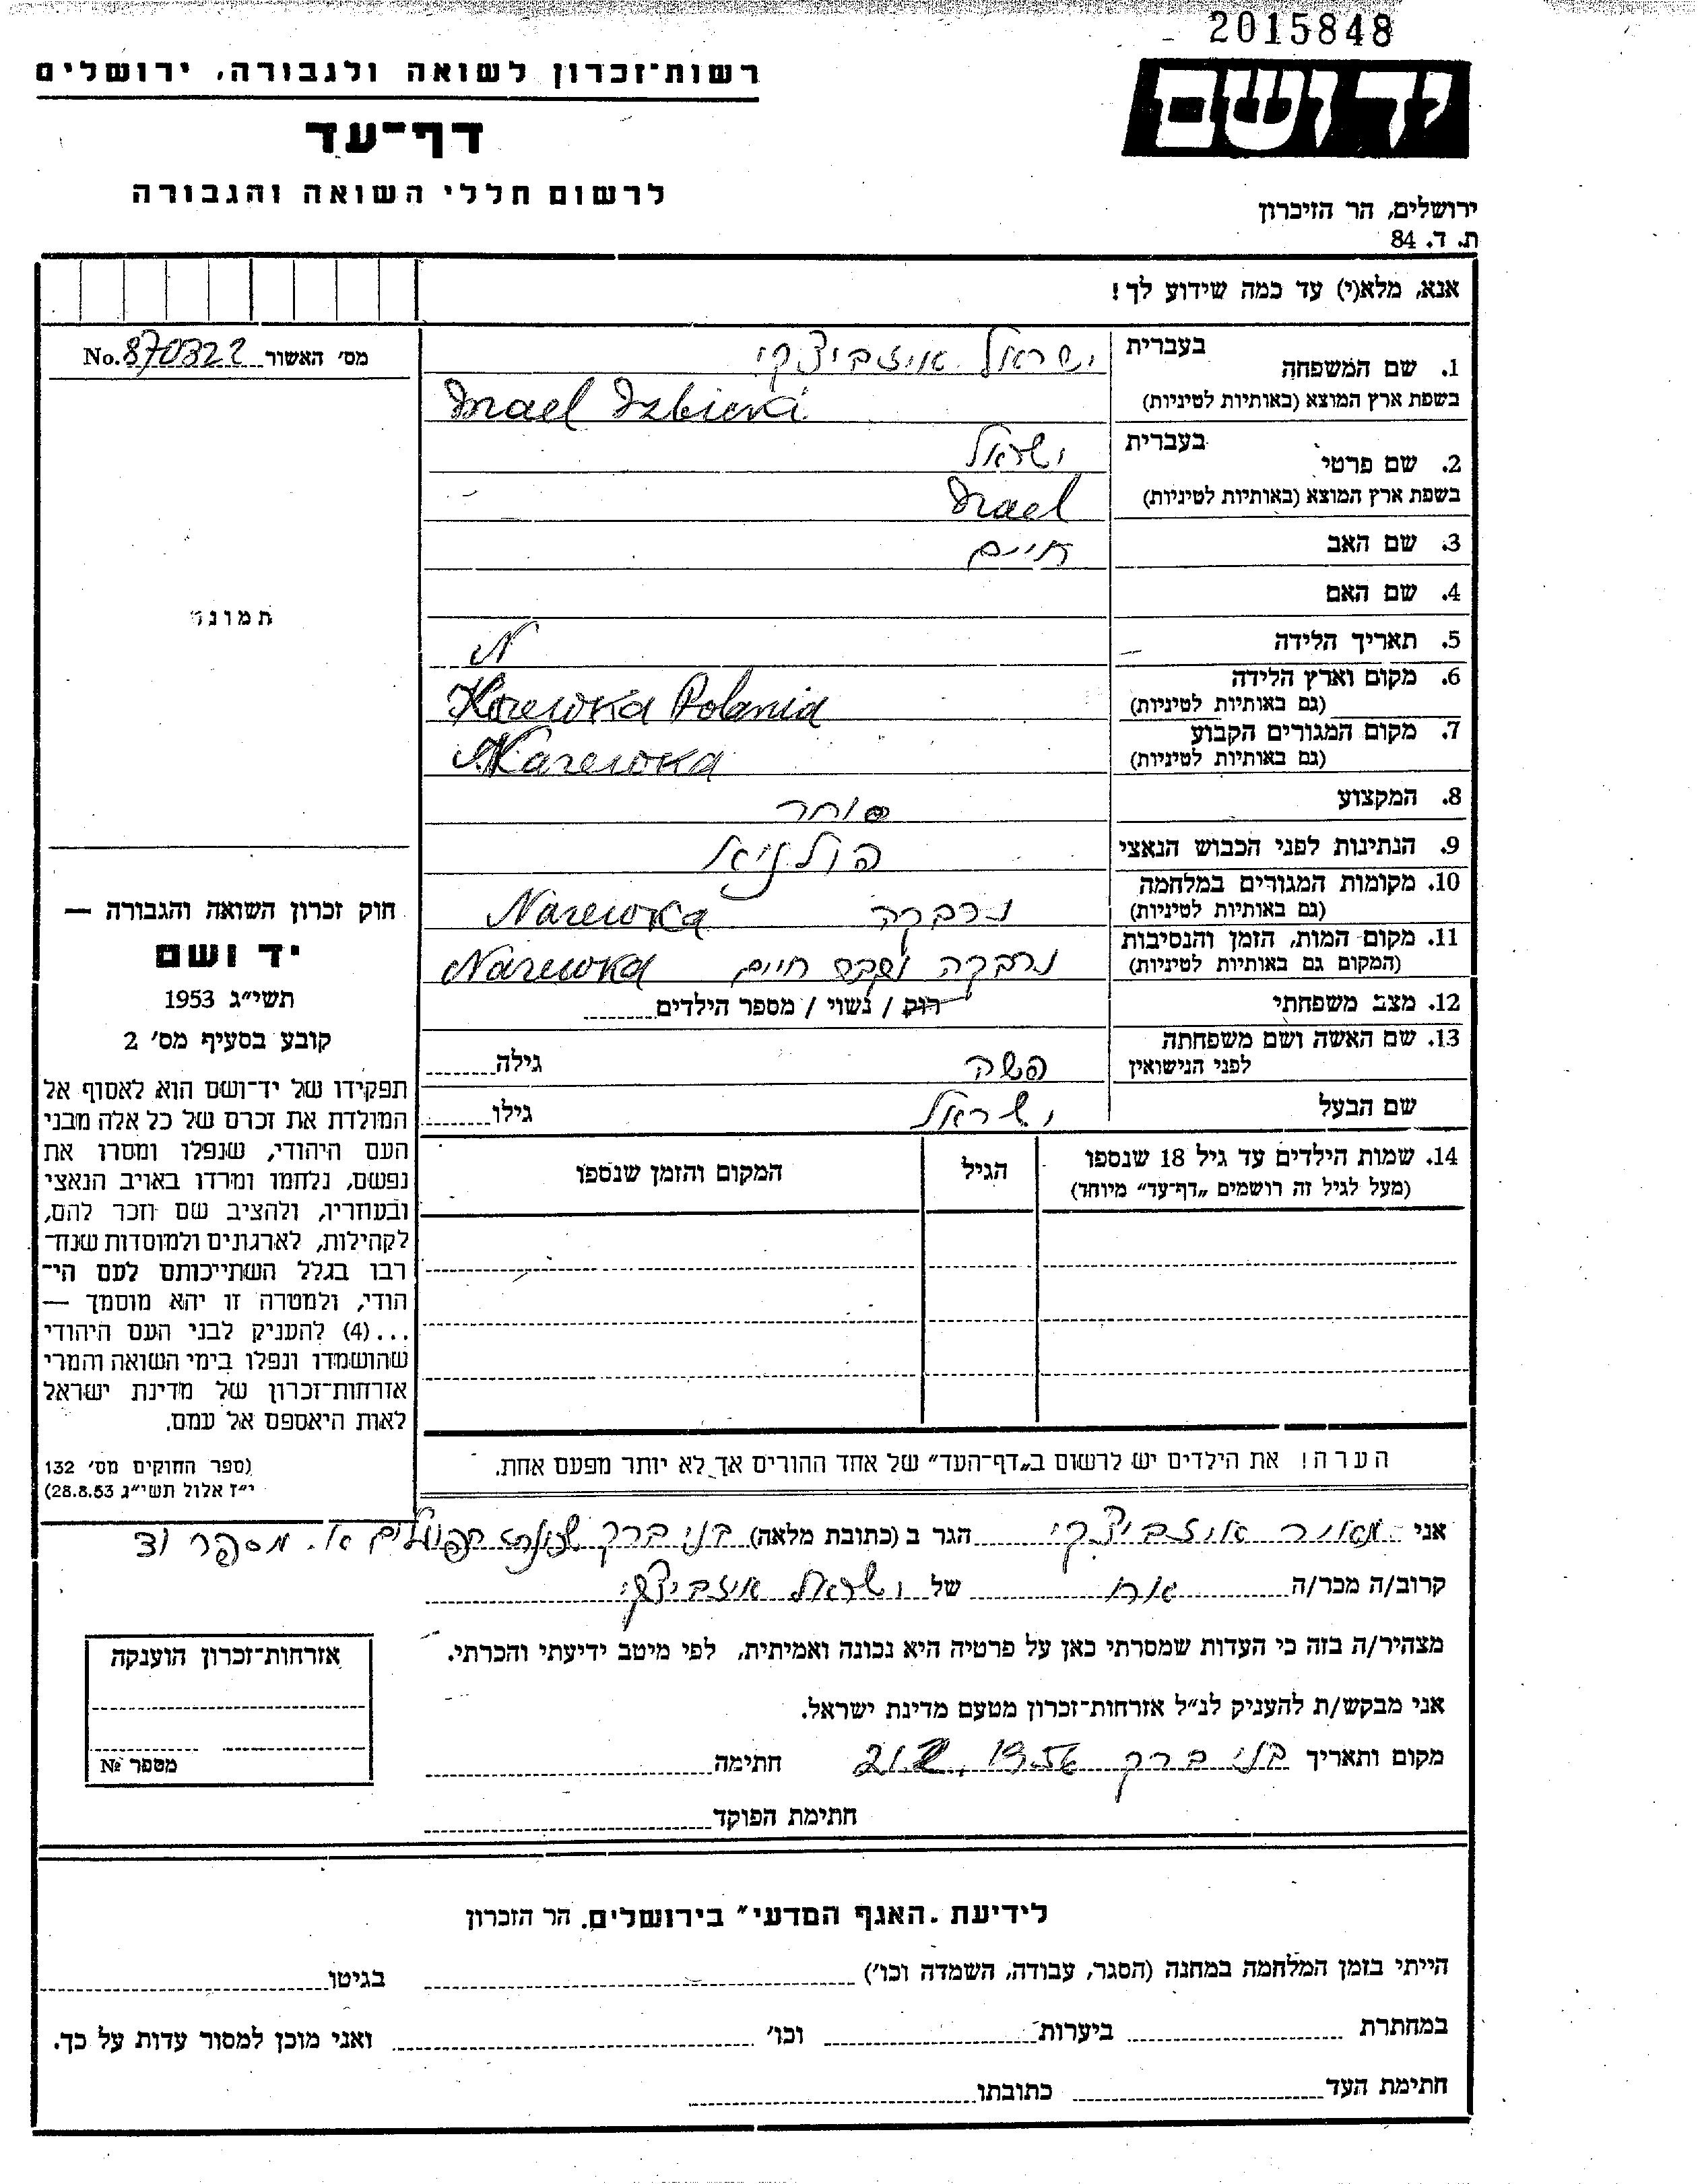 2015848
יד ושם
רשות־זכרון לשואה ולגבורה, ירושלים
דף־עד
לרשום חללי השואה והגבורה
ירושלים, הר הזיכרון
ת. ד. 84
אנא, מלא(י) עד כמה שידוע לך!
מס׳ האשור No. 870322
1. שם המשפחה בעברית ישראל איזביצקי
בשפת ארץ המוצא (באותיות לטיניות) Israel
2. שם פרטי בעברית ישראל
בשפת ארץ המוצא (באותיות לטיניות) Israel
3. שם האב חיים
4. שם האם
5. תאריך הלידה N
6. מקום וארץ הלידה
(גם באותיות לטיניות) Polania
7. מקום המגורים הקבוע
(גם באותיות לטיניות) Narewka
8. המקצוע סוחר
9. הנתינות לפני הכבוש הנאצי
10. מקומות המגורים במלחמה
(גם באותיות לטיניות) Narewka
11. מקום המות, הזמן והנסיבות
(המקום גם באותיות לטיניות) חיים Narewka
12. מצב משפחתי רוק / נשוי / מספר הילדים
13. שם האשה ושם משפחתה
לפני הנישואין פשה גילה
שם הבעל ישראל גילו
14. שמות הילדים עד גיל 18 שנספו
(מעל לגיל זה רושמים „דף־עד״ מיוחד)
הגיל
המקום והזמן שנספו
הערה! את הילדים יש לרשום ב„דף־העד״ של אחד ההורים אך לא יותר מפעם אחת.
תמונה
חוק זכרון השואה והגבורה —
יד ושם
תשי״ג 1953
קובע בסעיף מס׳ 2
תפקידו של יד־ושם הוא לאסוף אל
המולדת את זכרם של כל אלה מבני
העם היהודי, שנפלו ומסרו את
נפשם, נלחמו ומרדו באויב הנאצי
ובעוזריו, ולהציב שם וזכר להם,
לקהילות, לארגונים ולמוסדות שנח־
רבו בגלל השתייכותם לעם הי־
הודי, ולמטרה זו יהא מוסמך —
...(4) להעניק לבני העם היהודי
שהושמדו ונפלו בימי השואה והמרי
אזרחות־זכרון של מדינת ישראל
לאות היאספם אל עמם.
(ספר החוקים מס׳ 132
י״ז אלול תשי״ג 28.8.53)
אני מאיר איזביצקי הגר ב (כתובת מלאה) בני ברק הפועלים א׳. מספר
קרוב/ה מכר/ה של ישראל איזביצקי
מצהיר/ה בזה כי העדות שמסרתי כאן על פרטיה היא נכונה ואמיתית, לפי מיטב ידיעתי והכרתי.
אני מבקש/ת להעניק לנ״ל אזרחות־זכרון מטעם מדינת ישראל.
מקום ותאריך בני ברק חתימה
חתימת הפוקד
אזרחות־זכרון הוענקה
מספר №
לידיעת „האגף המדעי״ בירושלים, הר הזכרון
הייתי בזמן המלחמה במחנה (הסגר, עבודה, השמדה וכו׳) בגיטו
במחתרת ביערות וכו׳ ואני מוכן למסור עדות על כך.
חתימת העד כתובתו